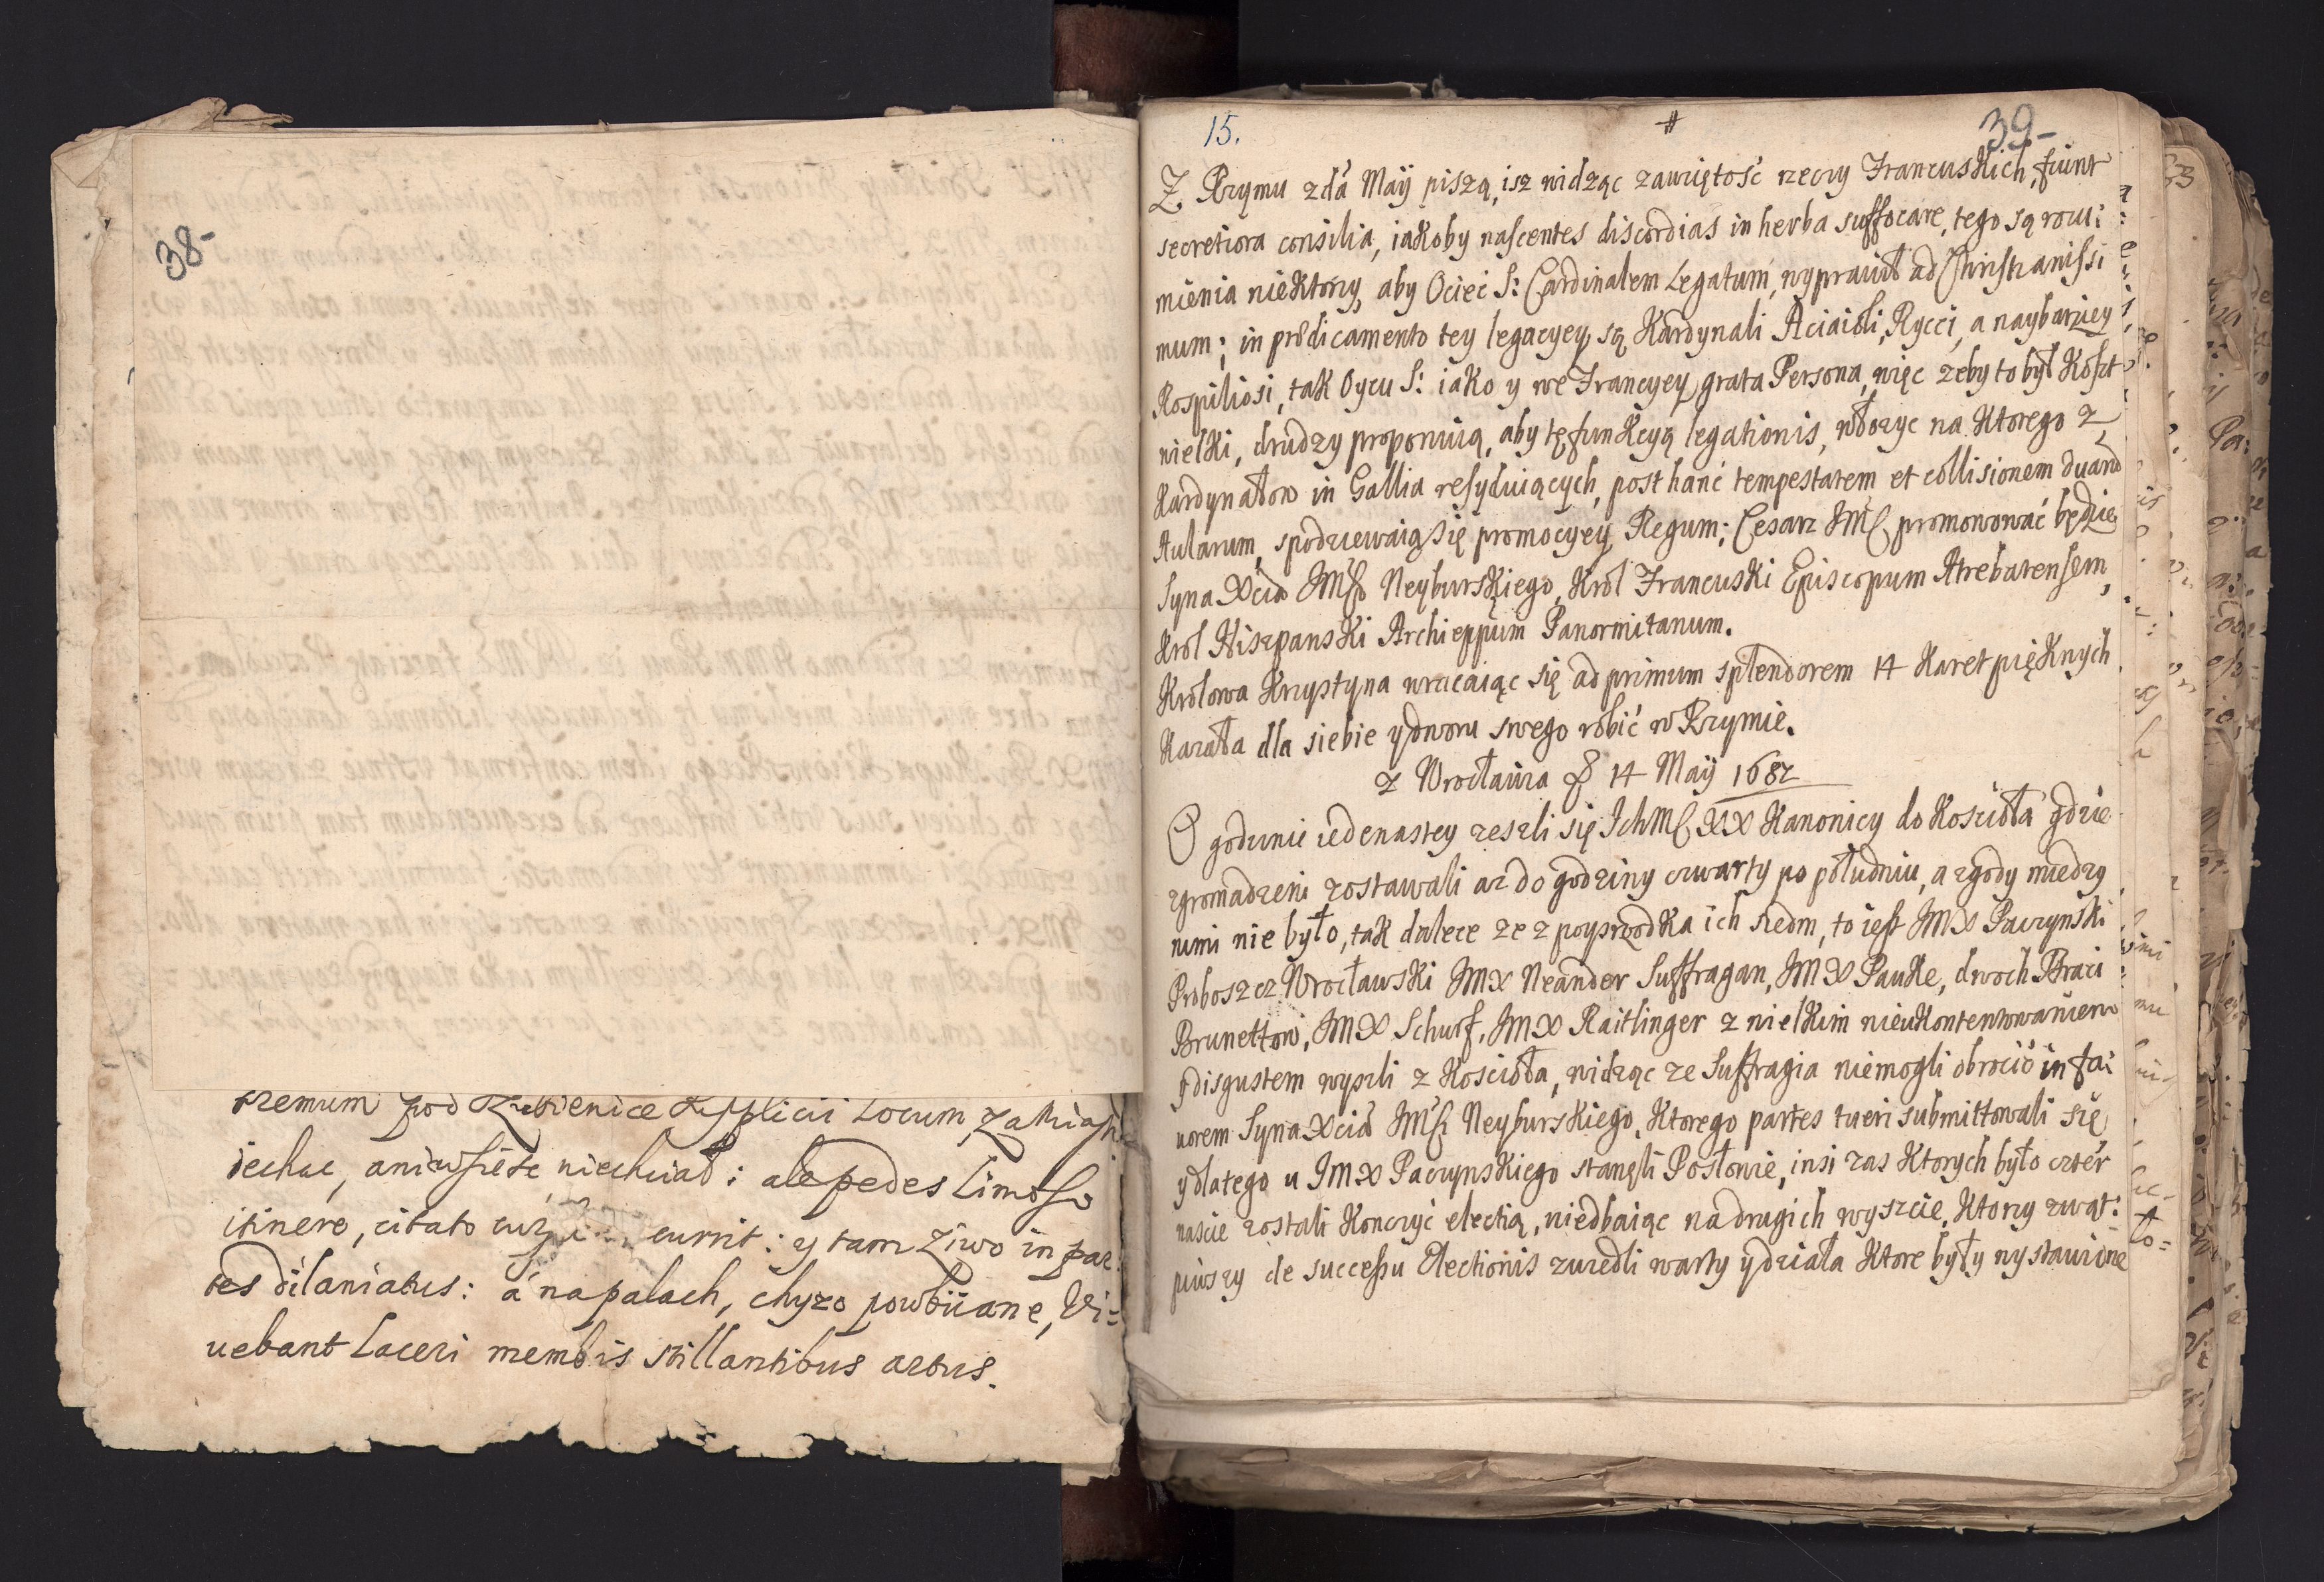 38-
tremum pod Locum
iechac, ani wsieść niechciał: ale pedes Limoso
itinere, citato currit: y tam żiwo in par:
tes dilaniatus: á na palach, chyzo powbiiane, Vi=
uebant Laceri membris stillantibus artus.
15.
39-
Z Rzymu z da Maÿ piszą, isz widząc zawziętość rzeczy Francuskich, fiunt
secretiora consilia, iakoby nascentes discordias in herba suffocare, tego są rozu:
mienia niektorzy, aby Ociec S: Cardinalem Legatum, wyprawił ad Christianissi
mum; in prædicamento tey legacyey są Kardynali Aciaioli, Rycci, a naybarziey
Rospiliosi, tak Oycu S: iako y we Francyey grata Persona, więc zeby to był koszt
wielki, drudzy proponuią, aby tę funkcyą legationis, włozyc na ktorego z
Kardynałow in Gallia resyduiących, post hanc tempestatem et collisionem duarũ
Aularum, spodziewaią się promocyey Regum; Cesarz JMS promonować będzie
Syna Xcia JMSci Neyburskiego, Krol Francuski Episcopum Atrebatensem,
Krol Hiszpanski Archieppum Panormitanum.
Krolowa Krzystyna wracaiąc się ad primum splendorem 14 Karet pięknych
Kazała dla siebie y dworu swego robić w Rzymie.
z Wrocławia D 14 Maÿ 1682
O godzinie iedenastey zeszli się IchMS XX Kanonicy do Kościoła gdzie
zgromadzeni zostawali az do godziny czwarty po południu, a zgody miedzy
nimi nie było, tak dalece ze z poysrzodka ich siedm, to iest JMX Paczynski
Proboszcz Wrocławski JMX Neander Suffragan, JMX Pauke, dwoch Braci
Brunettow, JMX Schurf, JMX Raitlinger z wielkim nieukontentowaniem
y disgustem wyszli z Koscioła, widząc ze Suffragia niemogli obrocić in fa:
uorem Syna Xcia JMSci Neyburskiego, ktorego partes tueri submittowali się
y dlatego u JMX Paczynskiego stanęli Posłowie, insi zas ktorych było czter
nascie zostali Konczyć electią, niedbaiąc na drugich wyszcie, ktorzy zwąt:
piwszy de successu Electionis zwiedli warty y działa ktore były wystawione